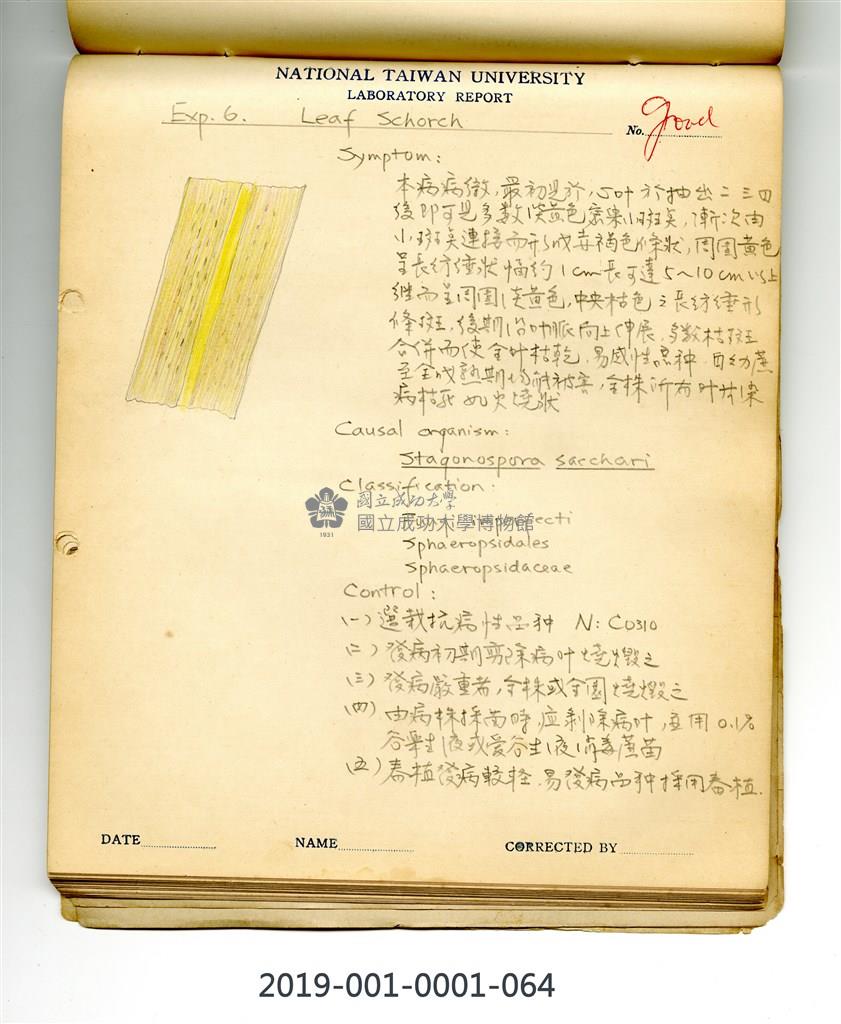 NATIONAL TAIWAN UNIVERSITY
LABORATORY REPORT
Exp. 6. Leaf Schorch
No. good
Symptom:
本病病徵,最初是於心叶於抽出二三四
後即可見多數淡黃色窄条小斑矣,漸次由
小斑矣連接而形成赤褐色條狀,周围黃色
呈長紡綞狀幅約1cm長可達5~10cm以上
継而呈周围淡黃色,中央枯色之長紡綞形
條斑,後期沿叶脈向上伸展,多数枯斑
合併而使全叶枯乾,易感性品种自幼蔗
至全成熟期均能被害,全株所有叶片染
病枯死如火燒狀
Causal organism:
Stagonospora sacchari
Classification:
國立成功大學
國立成功大學博物館
1931
Sphaeropsidales
Sphaeropsidaceae
Control:
(一)選栽抗病性品种 N:Co310
(二)發病初期剪除病叶燒燬之
(三)發病嚴重者,全株或全園燒燬之
(四)由病株採苗時,应剝除病叶,並用0.1%
谷樂生液或爱谷生液消毒蔗苗
(五)春植發病較輕,易發病品种採用春植.
DATE
NAME
CORRECTED BY
2019-001-0001-064